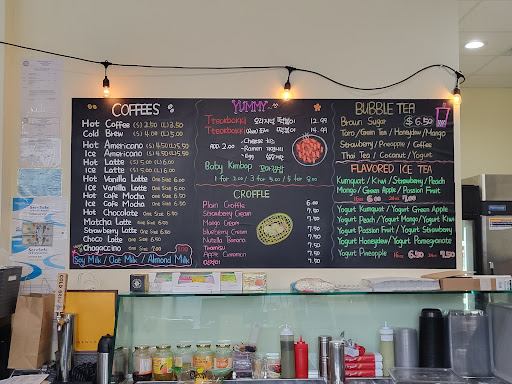 COFFEES
Hot Coffee (S) 2.50 (L) 3.50
Cold Brew (S) 4.00 (L) 5.00
Hot Americano (S) 4.50 (L) 5.50
Ice Americano (S) 4.50 (L) 5.50
Hot Latte One Size 5.00
Ice Latte One Size 5.00
Hot Vanilla Latte One Size 6.00
Ice Vanilla Latte One Size 6.00
Hot Cafe Mocha One Size 6.00
Ice Cafe Mocha One Size 6.00
Hot Chocolate One Size 6.00
Matcha Latte One Size 6.00
Strawberry Latte One Size 6.00
Choco Latte One Size 6.00
Chagaccino One Size 7.00
Soy Milk / Oat Milk / Almond Milk
YUMMY~
Tteokbokki 12.99
Tteokbokki 떡볶이 14.99
Add 2.00
Cheese 치즈
Ramen
Egg
Baby Kimbap 꼬마김밥
1 for 2.00 / 2 for 5.00 / 5 for 8.00
CROFFLE
Plain Croffle 6.00
Strawberry Cream 7.50
Mango Cream 7.50
Blueberry Cream 7.50
Nutella Banana 7.50
Tiramisu 7.50
Apple Cinnamon 7.50
7.50
BUBBLE TEA
Brown Sugar $6.50
Taro / Green Tea / Honeydew / Mango
Strawberry / Pineapple / Coffee
Thai Tea / Coconut / Yogurt
FLAVORED ICE TEA
Kumquat / Kiwi / Strawberry / Peach
Mango / Green Apple / Passion Fruit
16oz 6.00 24oz 7.00
Yogurt Kumquat / Yogurt Green Apple
Yogurt Grape / Yogurt Mango / Yogurt Kiwi
Yogurt Passion Fruit / Yogurt Strawberry
Yogurt Honeydew / Yogurt Pomegranate
Yogurt Pineapple 16oz 6.50 24oz 7.50